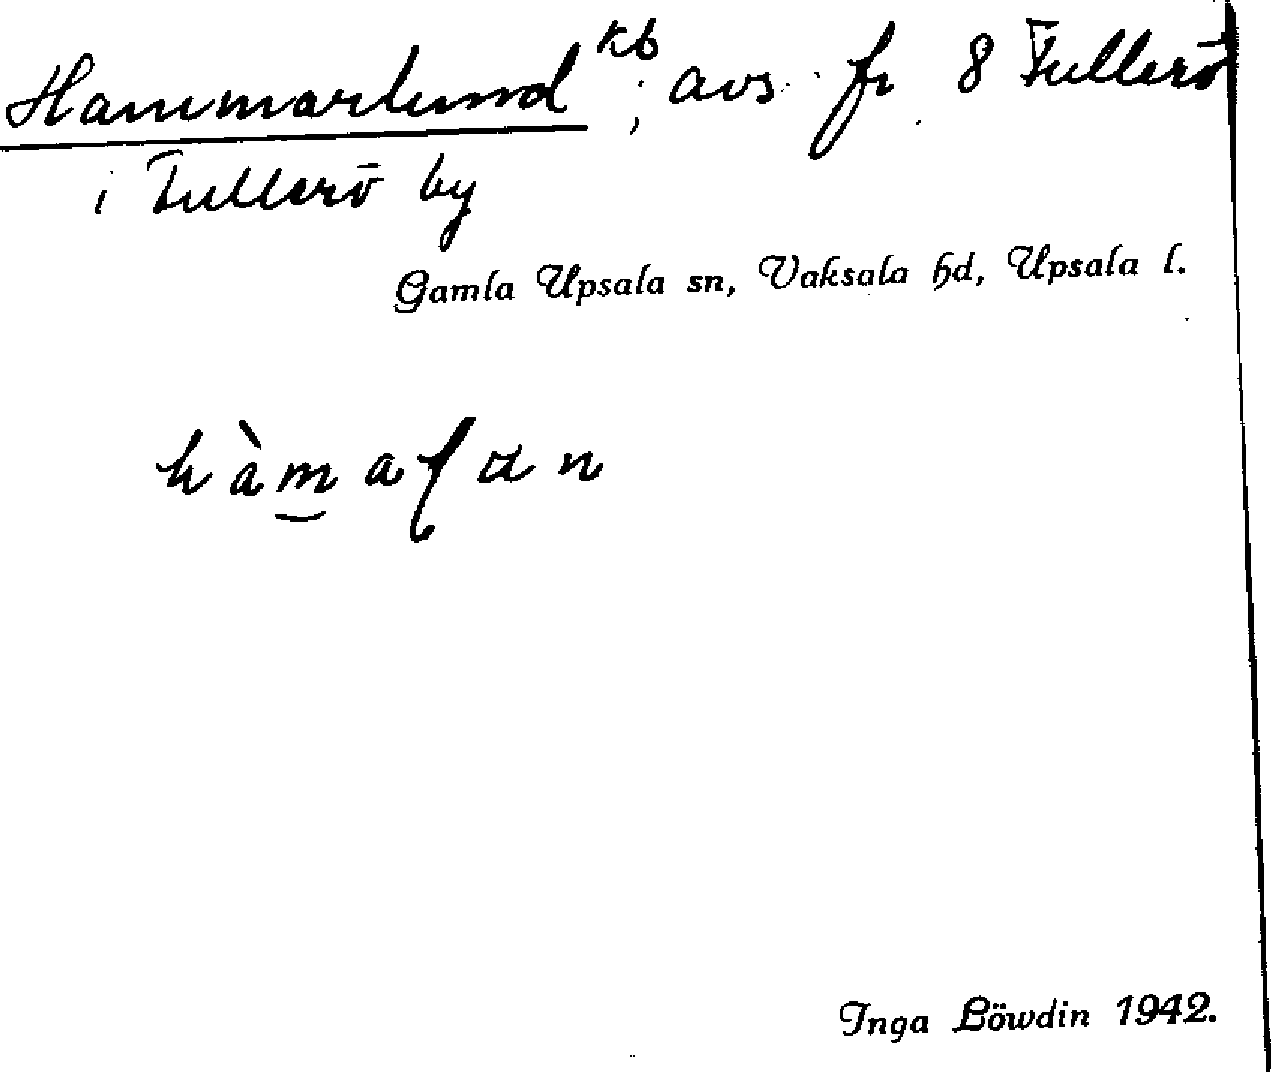 Hammarlund kb; avs. fr. 8 Fullerö
i Fullerö by
Gamla Upsala sn, Vaksala hd, Upsala l.
hàmaɭɑn
Inga Löwdin 1942.